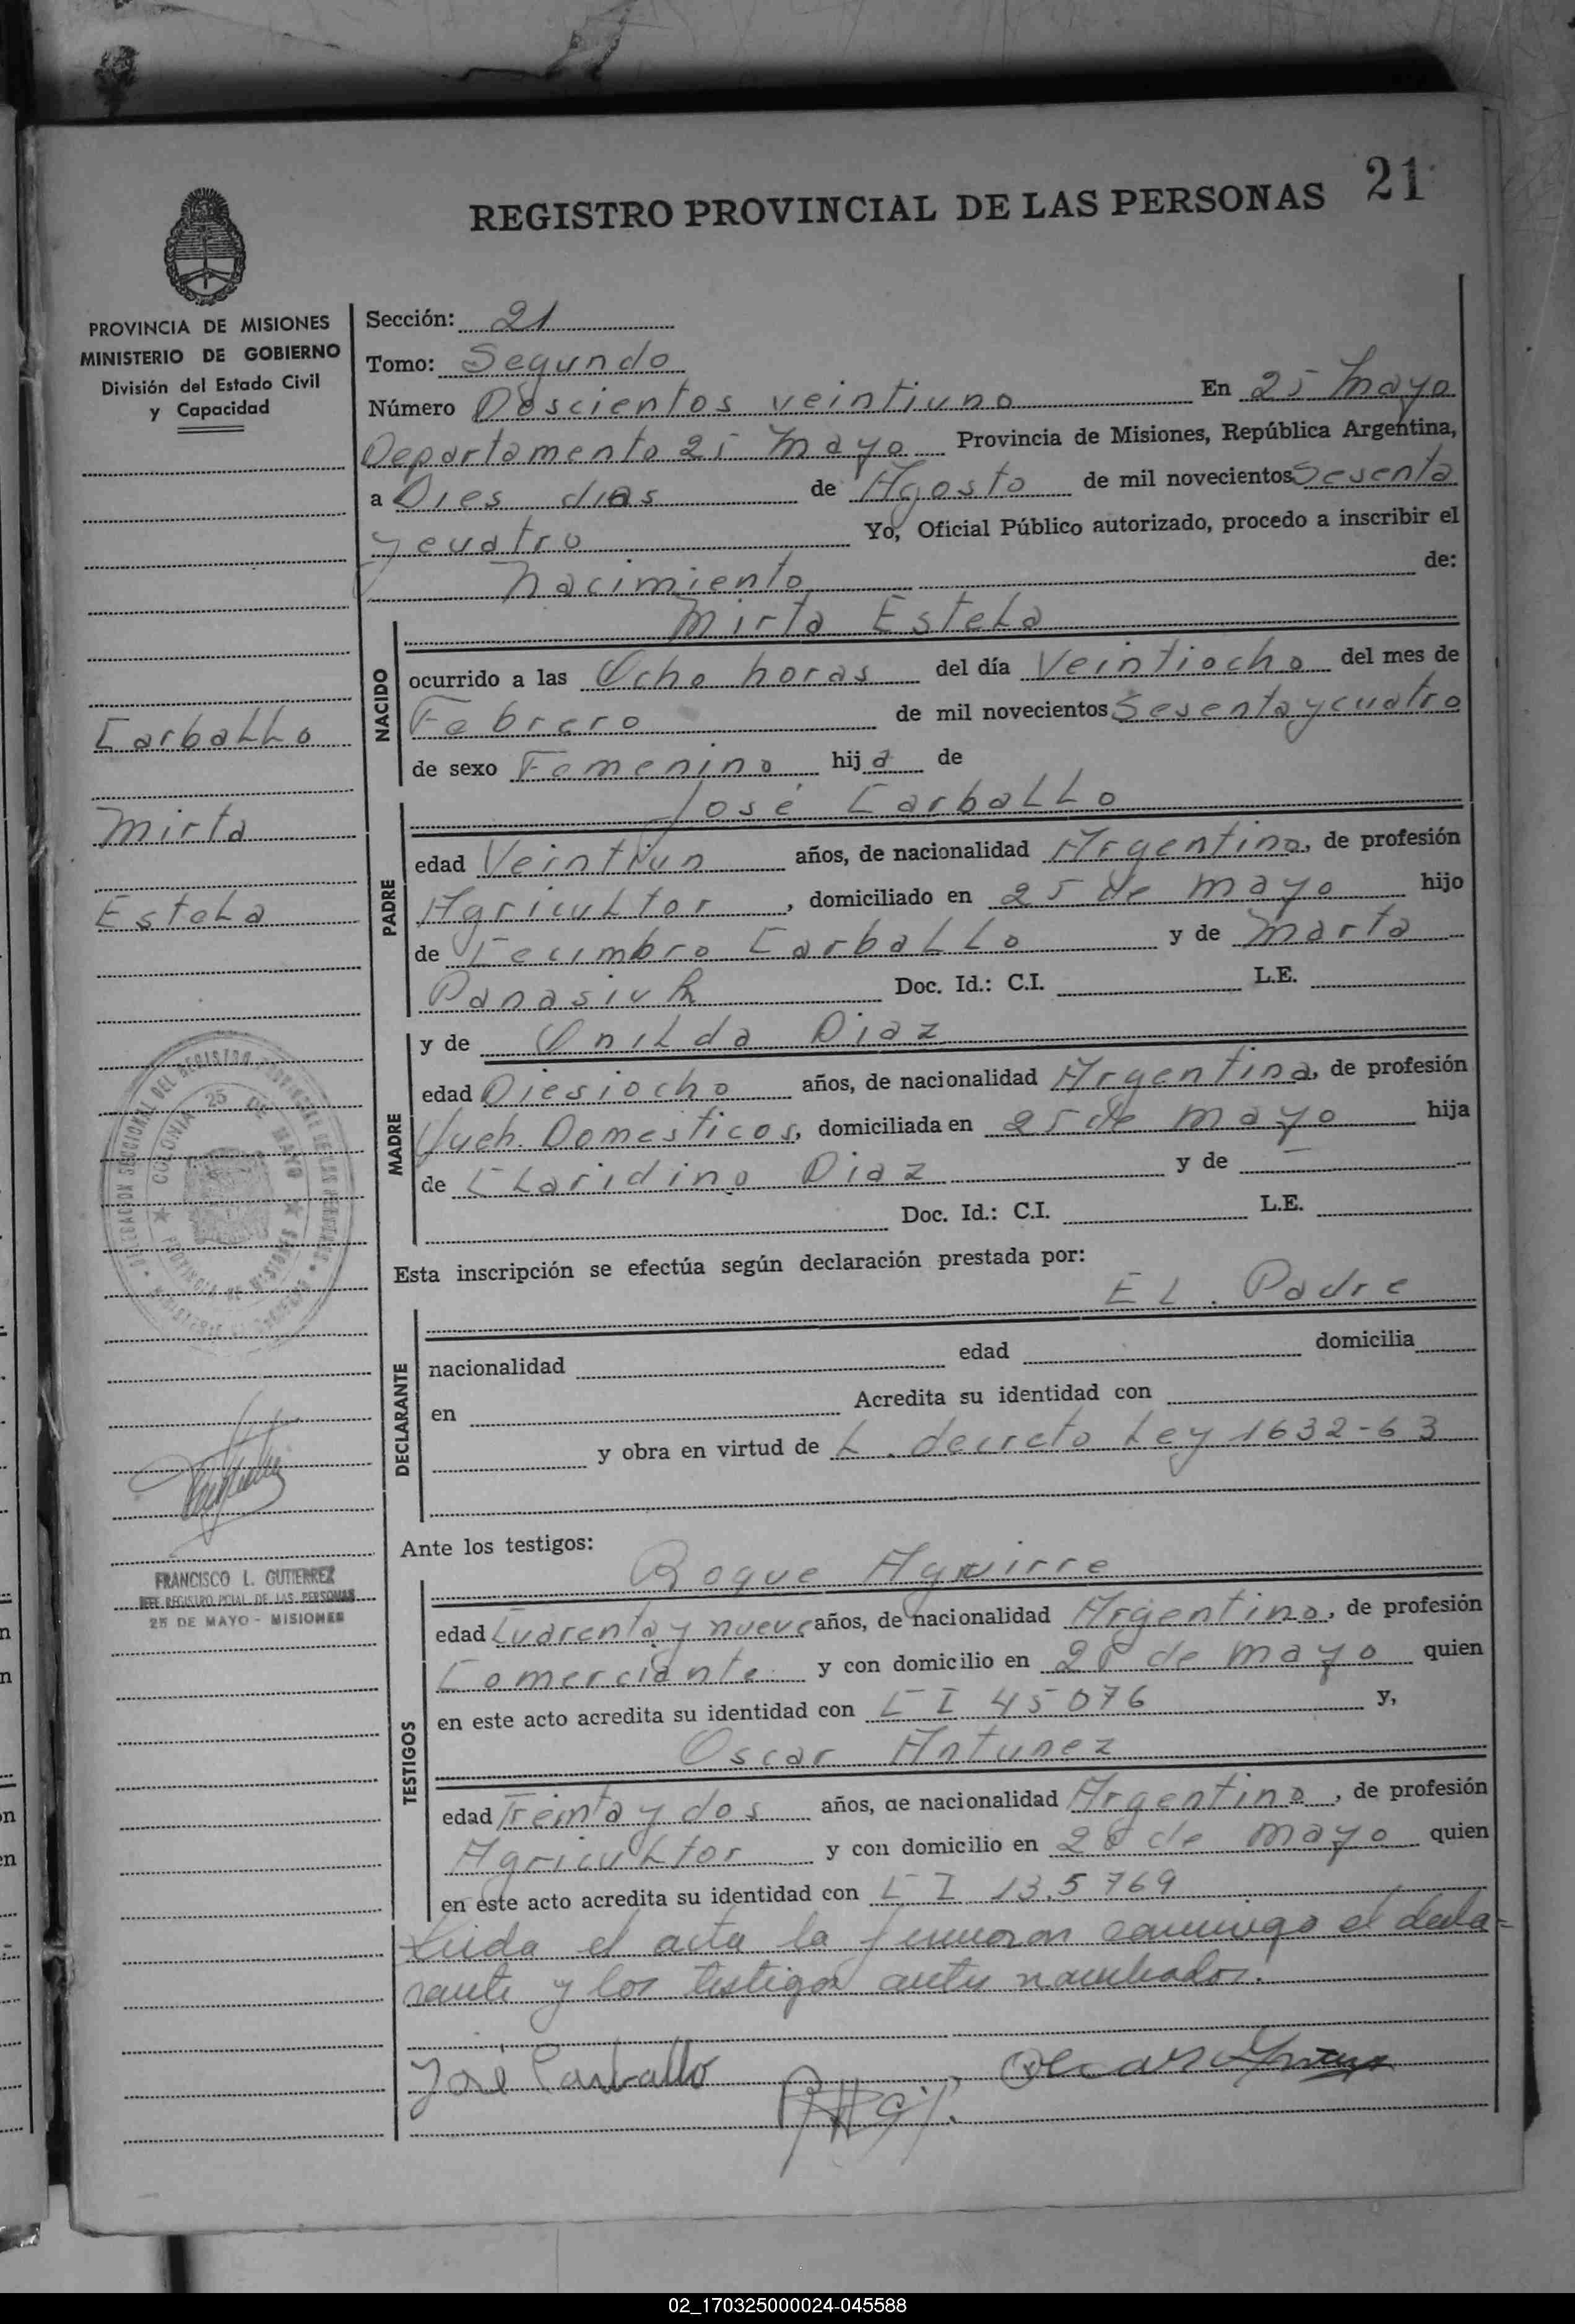 21
REGISTRO PROVINCIAL DE LAS PERSONAS
PROVINCIA DE MISIONES
MINISTERIO DE GOBIERNO
División del Estado Civil
y Capacidad
Carballo
Mirta
Estela
DELEGACION SECCIONAL DEL REGISTRO PROVINCIAL DE LAS PERSONAS
COLONIA 25 DE MAYO
PROVINCIA DE MISIONES
FRANCISCO L. GUTIERREZ
JEFE REGISTRO PCIAL. DE LAS PERSONAS
25 DE MAYO - MISIONES
Sección: 21
Tomo: Segundo
Número Doscientos veintiuno En 25 Mayo
Departamento 25 Mayo Provincia de Misiones, República Argentina,
a Dies dias de Agosto de mil novecientos Sesenta
y cuatro Yo, Oficial Público autorizado, procedo a inscribir el
Nacimiento de:
NACIDO
Mirta Estela
ocurrido a las Ocho horas del día Veintiocho del mes de
Febrero de mil novecientos Sesenta y cuatro
de sexo Femenino hija de
PADRE
José Carballo
edad Veintiun años, de nacionalidad Argentino, de profesión
Agricultor, domiciliado en 25 de Mayo hijo
de Carballo y de Marta
Panasiuk Doc. Id.: C.I. L.E.
MADRE
y de Onilda Diaz
edad Diesiocho años, de nacionalidad Argentina, de profesión
Domesticos, domiciliada en 25 de Mayo hija
de Claridino Diaz y de —
Doc. Id.: C.I. L.E.
Esta inscripción se efectúa según declaración prestada por:
EL. Padre
DECLARANTE
nacionalidad edad domicilia
en Acredita su identidad con
y obra en virtud de L. decreto Ley 1632-63
Ante los testigos:
TESTIGOS
Roque Aguirre
edad Cuarenta y nueve años, de nacionalidad Argentino, de profesión
Comerciante y con domicilio en 25 de Mayo quien
en este acto acredita su identidad con C I 45076 y,
Oscar Antunez
edad Treinta y dos años, de nacionalidad Argentino, de profesión
Agricultor y con domicilio en 25 de Mayo quien
en este acto acredita su identidad con C I 13.5769
Leida el acta la firmaron conmigo el decla-
rante y los testigos antes nombrados.
José Carballo
02_170325000024-045588